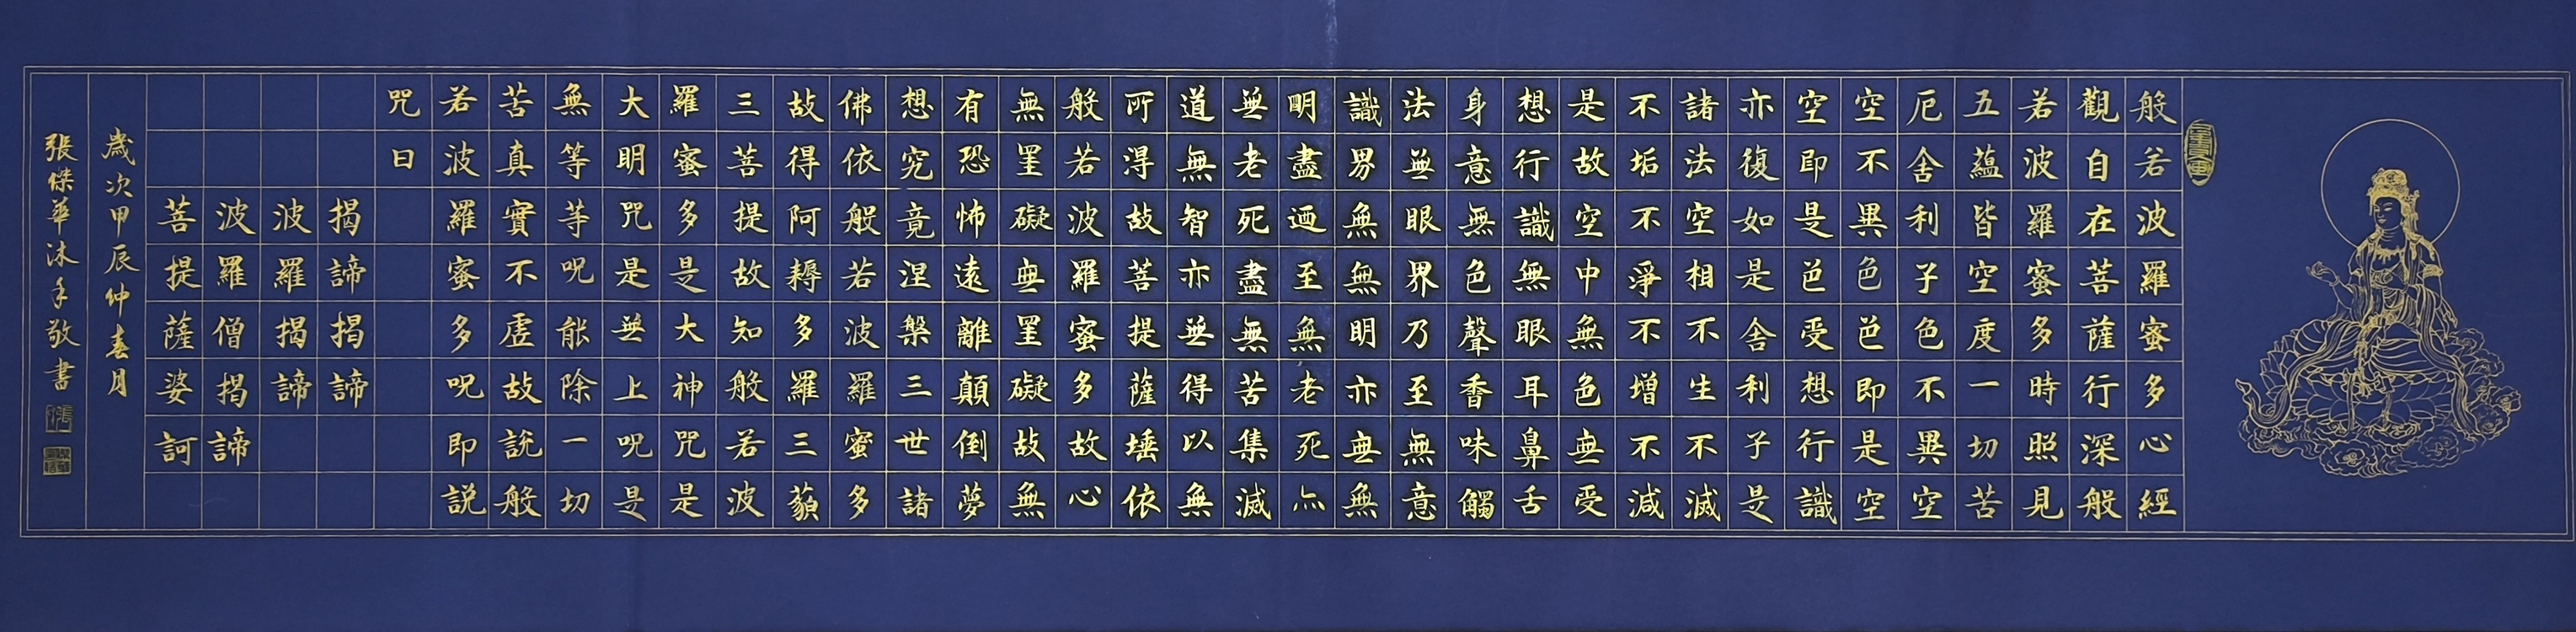 般若波羅蜜多心經
觀自在菩薩行深般
若波羅蜜多時照見
五蘊皆空度一切苦
厄舍利子色不異空
空不異色色即是空
空即是色受想行識
亦復如是舍利子是
諸法空相不生不滅
不垢不淨不增不減
是故空中無色無受
想行識無眼耳鼻舌
身意無色聲香味觸
法無眼界乃至無意
識界無無明亦無無
明盡迺至無老死亦
無老死盡無苦集滅
道無智亦無得以無
所得故菩提薩埵依
般若波羅蜜多故心
無罣礙無罣礙故無
有恐怖遠離顛倒夢
想究竟涅槃三世諸
佛依般若波羅蜜多
故得阿耨多羅三藐
三菩提故知般若波
羅蜜多是大神咒是
大明咒是無上呪是
無等等呪能除一切
苦真實不虛故說般
若波羅蜜多呪即說
咒曰
揭諦揭諦
波羅揭諦
波羅僧揭諦
菩提薩婆訶
歲次甲辰仲春月
張傑華沐手敬書